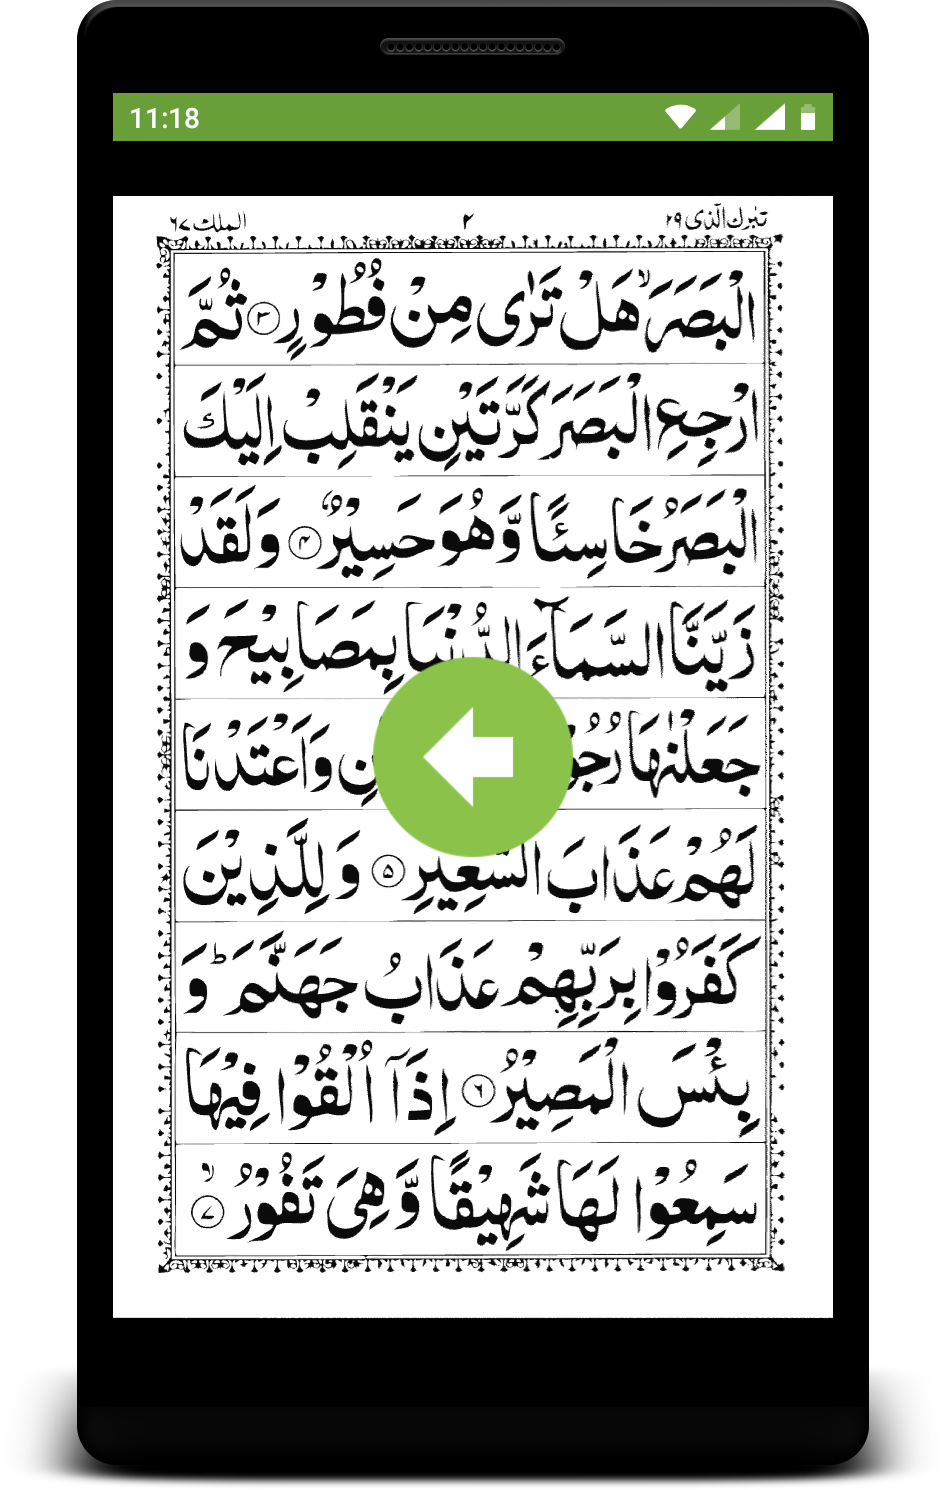 11:18
تبٰرك الّذى ٢٩
٢
الملك ٦٧
الْبَصَرَ ۙ هَلْ تَرٰى مِنْ فُطُوْرٍ ③ ثُمَّ
ارْجِعِ الْبَصَرَ كَرَّتَيْنِ يَنْقَلِبْ اِلَيْكَ
الْبَصَرُ خَاسِئًا وَّهُوَ حَسِيْرٌ ④ وَلَقَدْ
زَيَّنَّا السَّمَآءَ الدُّنْيَا بِمَصَابِيْحَ وَ
جَعَلْنٰهَا وَاَعْتَدْنَا
لَهُمْ عَذَابَ السَّعِيْرِ ⑤ وَلِلَّذِيْنَ
كَفَرُوْا بِرَبِّهِمْ عَذَابُ جَهَنَّمَ ؕ وَ
بِئْسَ الْمَصِيْرُ ⑥ اِذَاۤ اُلْقُوْا فِيْهَا
سَمِعُوْا لَهَا شَهِيْقًا وَّهِىَ تَفُوْرُ ۙ ⑦